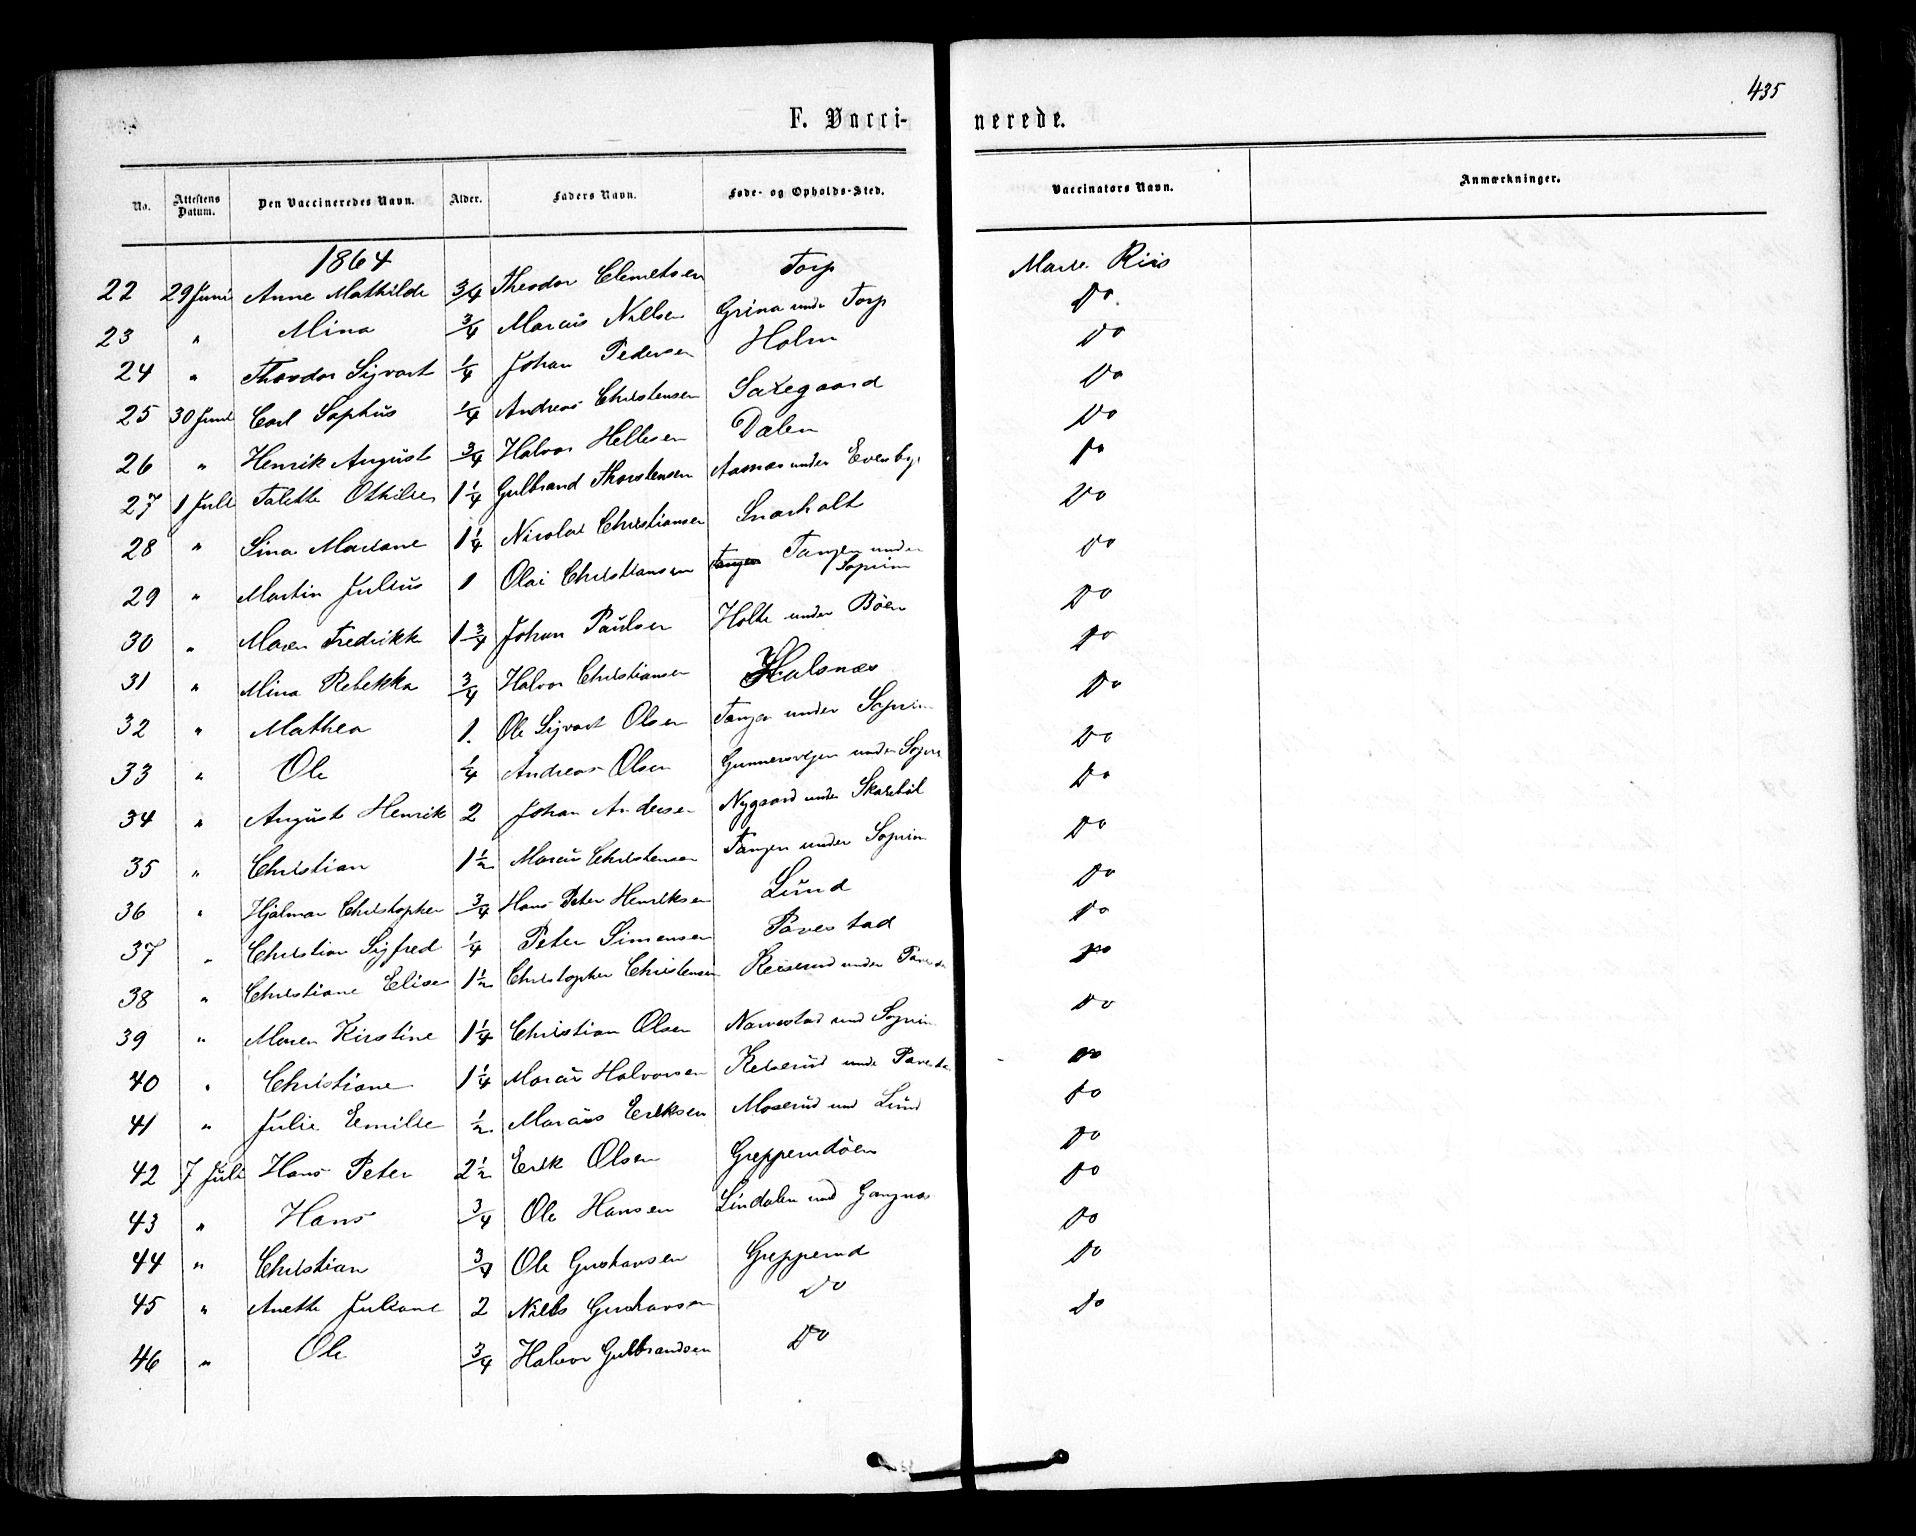 435
F. Vacci- nerede.
No. Attestens Datum. Den Vaccineredes Navn. Alder. Faders Navn. Føde- og Opholds-Sted. Vaccinators Navn. Anmærkninger.
1864
22 29 Juni Anne Mathilde 3/4 Theodor Clemetsen Torp Marte Riis
23 " Mina 3/4 Marcus Nilsen Grina under Torp Do
24 " Theodor Sigvart 1/4 Johan Pedersen Holm Do
25 30 Juni Carl Sophus 1/4 Andreas Christensen Saxegaard Do
26 " Henrik August 3/4 Halvor Hellesen Dalen Do
27 1 Juli Talette Othilie 1 1/4 Gulbrand Thorstensen Aasnæs under Evenby Do
28 " Sina Mariane 1 1/4 Nicolai Christiansen Snarholt Do
29 " Martin Julius 1 Olai Christiansen Tangen under Soprim Do
30 " Maren Fredrikke 1 3/4 Johan Paulsen Holte under Böen Do
31 " Mina Rebekka 3/4 Halvor Christiansen Halsnæs Do
32 " Mathea 1. Ole Sigvart Olsen Tangen under Soprim Do
33 " Ole 1/4 Andreas Olsen under Do
34 " August Henrik 2 Johan Andersen Nygaard under Skaeböl Do
35 " Christian 1 1/2 Marcus Christensen Tangen under Soprim Do
36 " Hjalmar Christopher 3/4 Hans Peter Henriksen Lund Do
37 " Christian Sigfred 1/4 Peter Simensen Pavestad Do
38 " Christiane Elise 1 1/2 Christopher Christensen Keiserud under Do
39 " Maren Kirstine 1 1/4 Christian Olsen Narvestad und Soprim Do
40 " Christiane 1 1/4 Marcus Halvorsen Keiserud unde Do
41 " Julie Emilie 1/2 Marcus Eriksen Moserud und Lund Do
42 7 Juli Hans Peter 2 1/2 Erik Olsen Grepperudöen Do
43 " Hans 3/4 Ole Hansen Lindalen und Gangnæs Do
44 " Christian 3/4 Ole Gustavsen Grepperud Do
45 " Anette Juliane 2 Nils Gustavsen Do Do
46 " Ole 3/4 Halvor Gulbrandsen Do Do